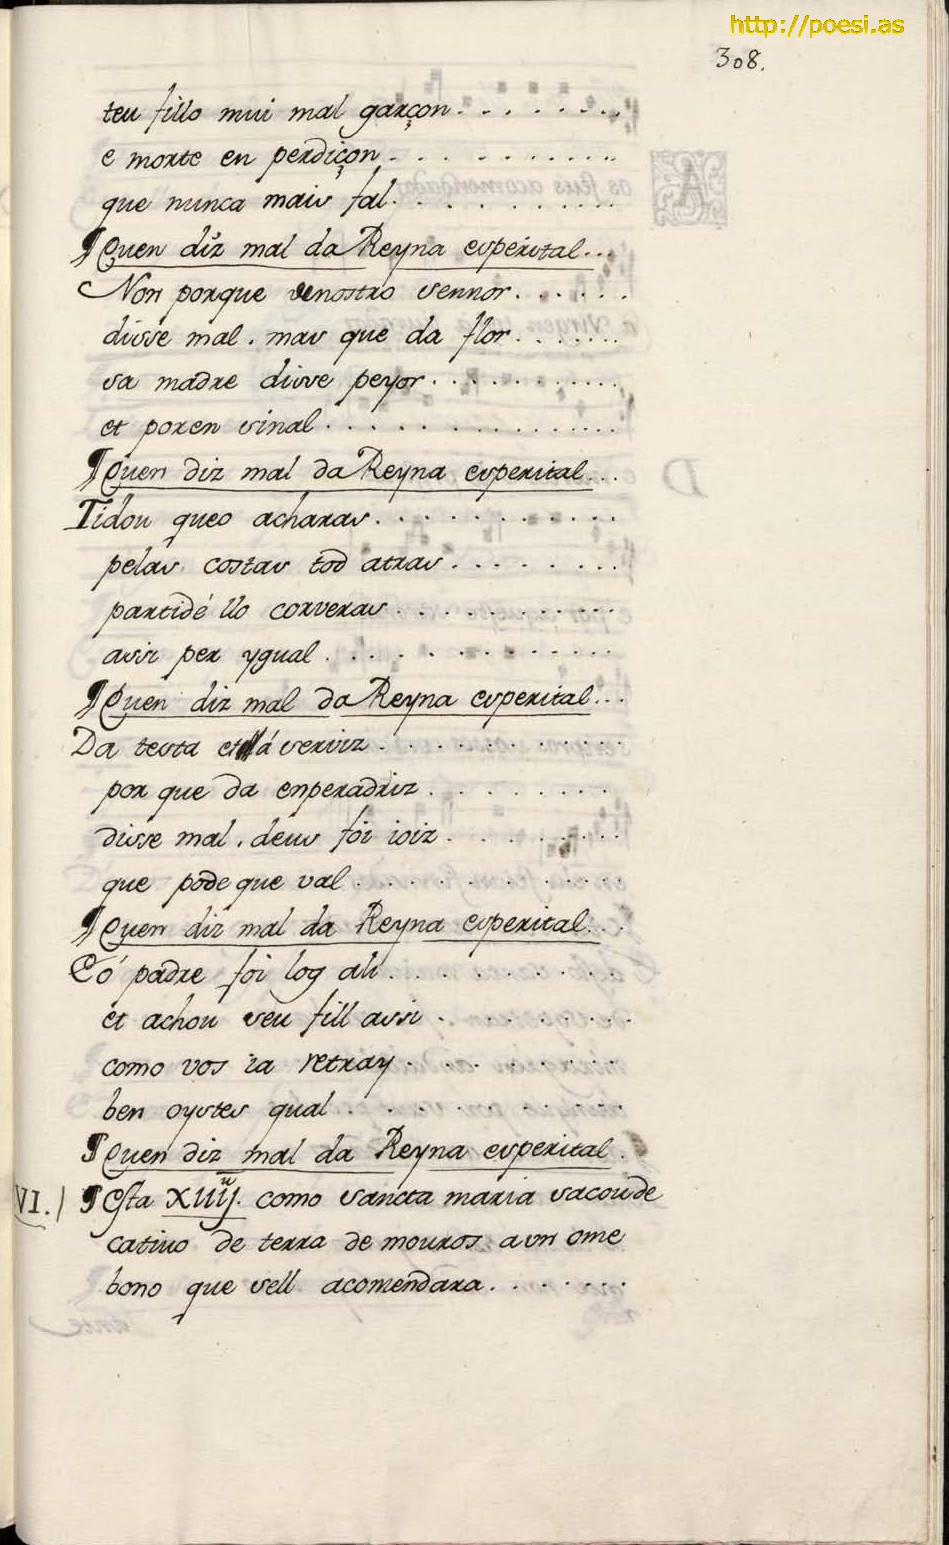 http://poesi.as
308.
teu fillo mui mal garçon . . . . . . . .
e morte en perdiçon . . . . . . . . . .
que nunca mais fal . . . . . . . . . .
¶ Quen diz mal da Reyna esperital . . .
Non porque denostro sennor . . . . . .
disse mal . mas que da flor . . . . . .
sa madre disse peyor . . . . . . . . .
et poren sinal . . . . . . . . . . . .
¶ Quen diz mal da Reyna esperital . . .
Tidou queo acharas . . . . . . . . . .
pelas costas tod atras . . . . . . . .
partidé llo corveras . . . . . . . . .
assi per ygual . . . . . . . . . . . .
¶ Quen diz mal da Reyna esperital . . .
Da testa et á serviz . . . . . . . . .
por que da enperadriz . . . . . . . .
disse mal . deus foi ioiz . . . . . .
que pode que val . . . . . . . . . . .
¶ Quen diz mal da Reyna esperital . . .
Eó padre foi log ali . . . . . . . . .
et achou seu fill assi . . . . . . . .
como vos ia retray . . . . . . . . . .
ben oystes qual . . . . . . . . . . .
¶ Quen diz mal da Reyna esperital .
VI. / ¶ Esta como sancta maria sacou de
catiuo de terra de mouros a un ome
bono que sell acomendara . . . . . . .